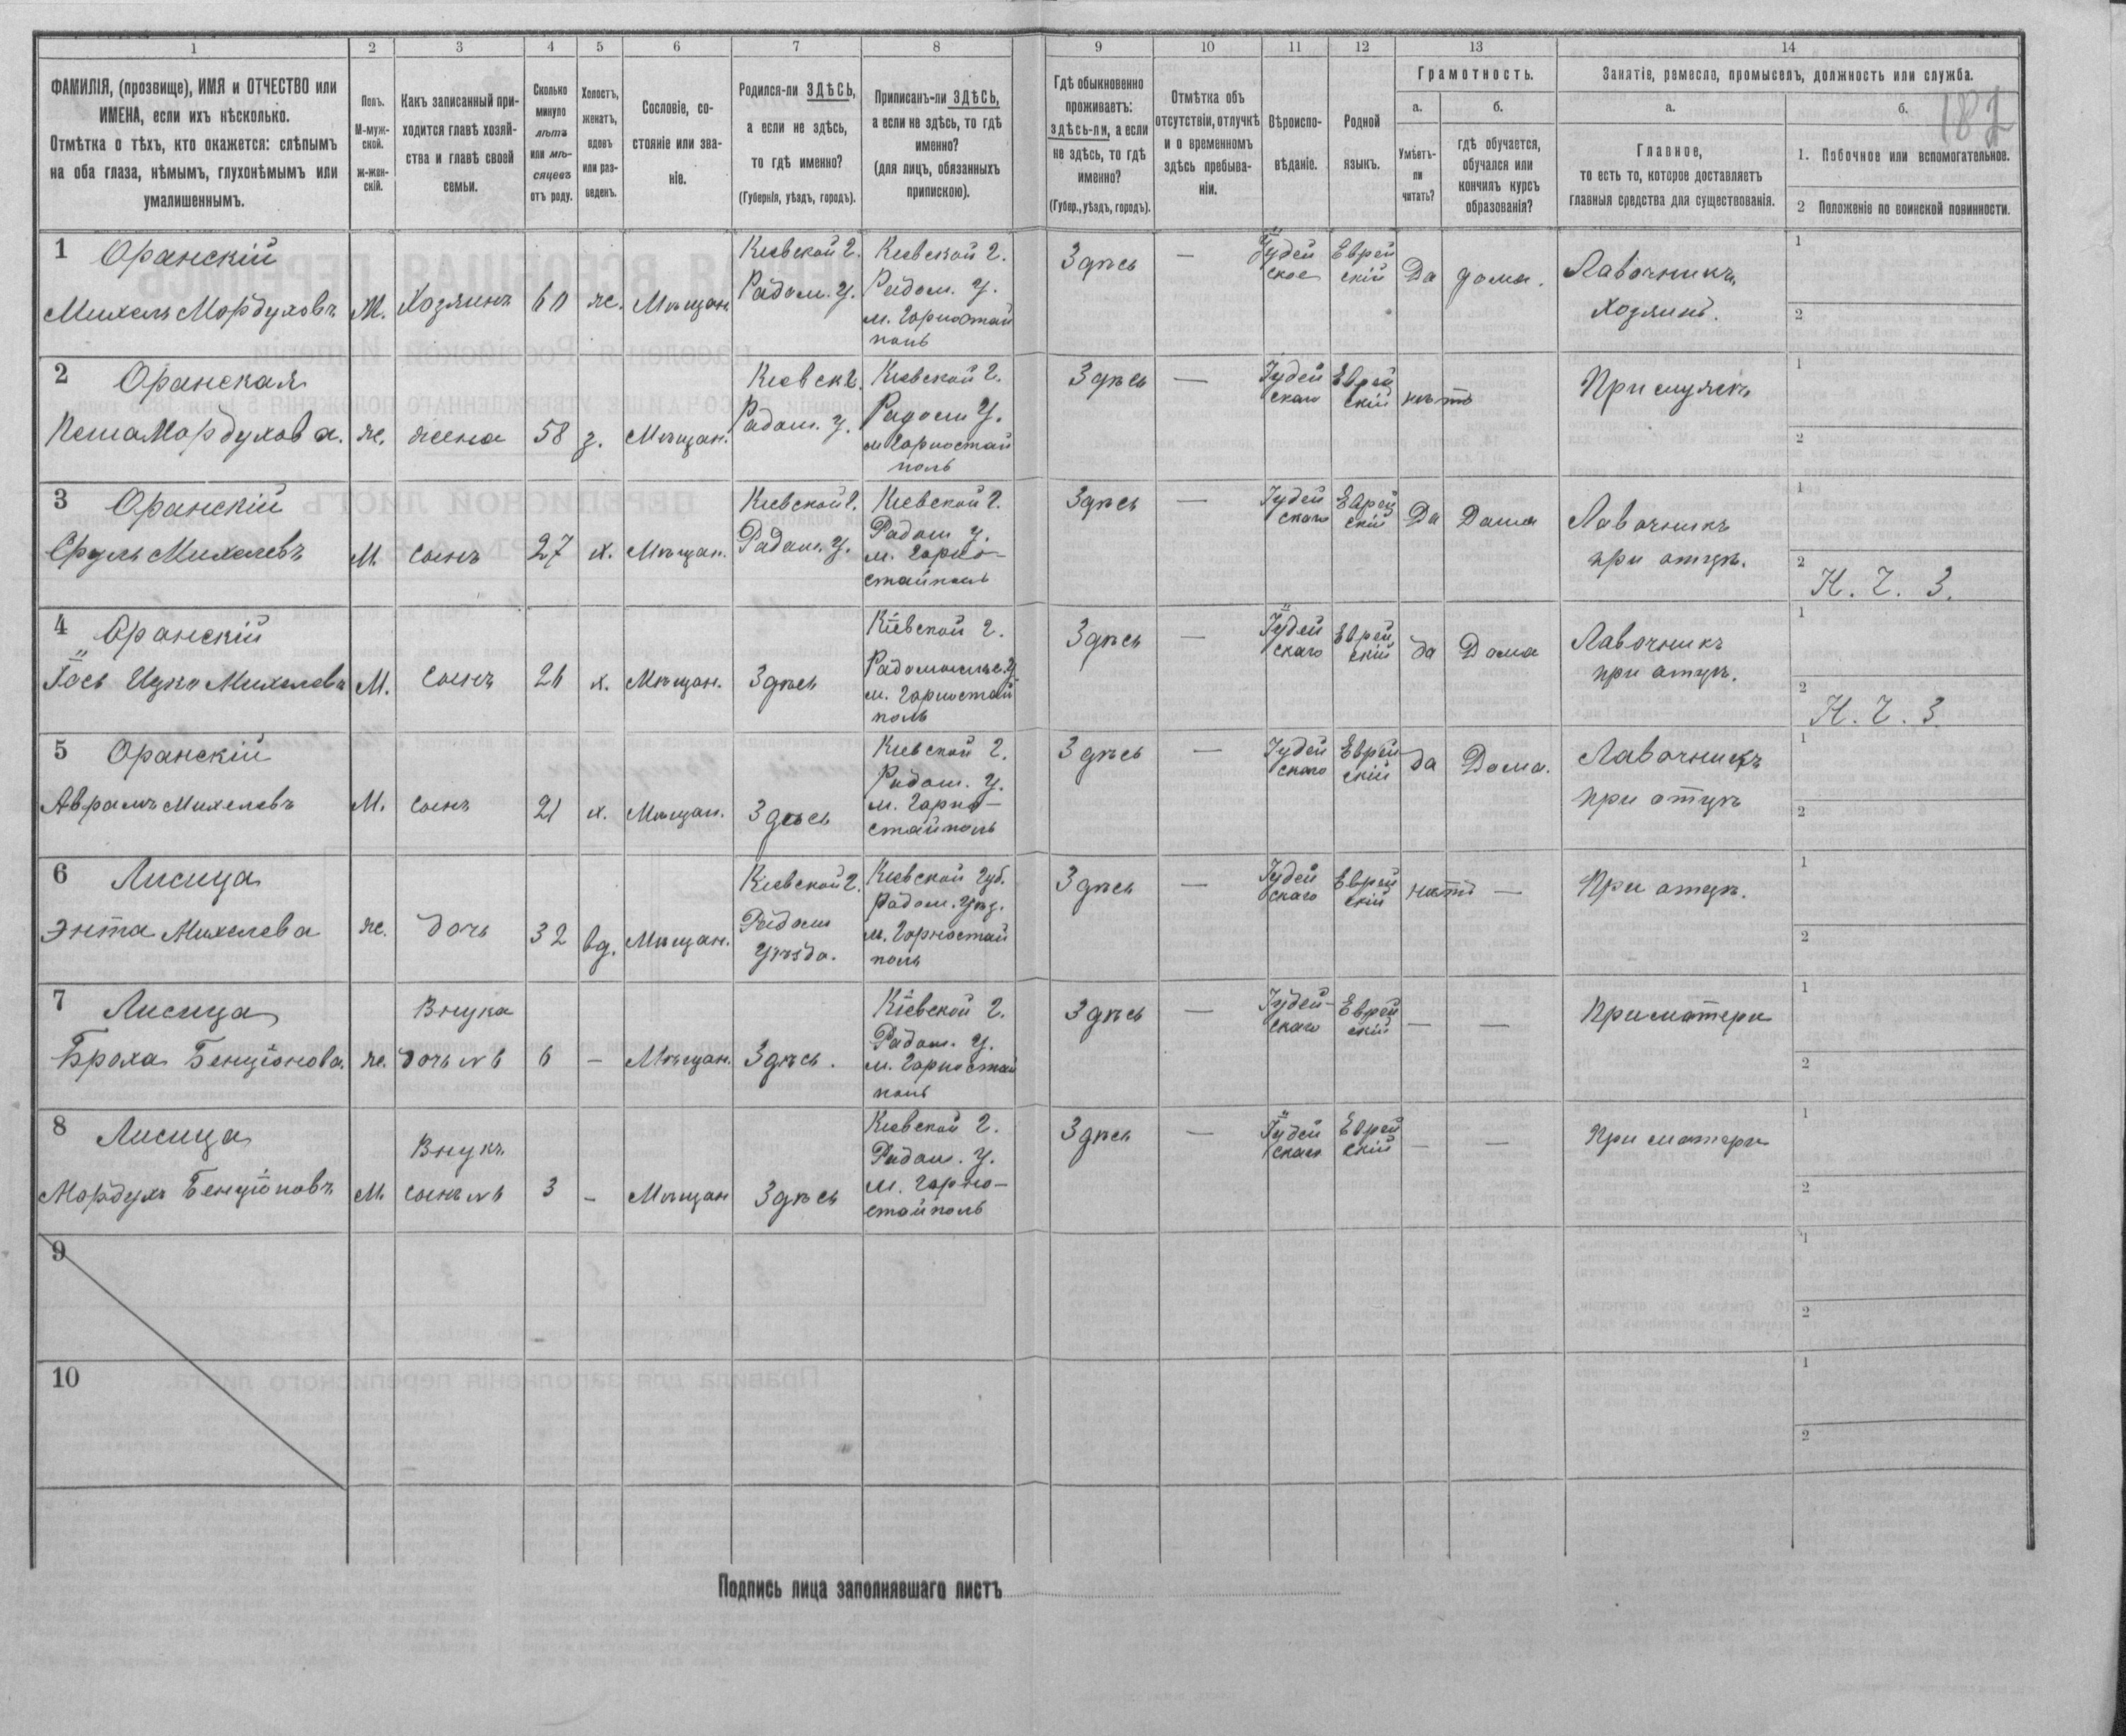 1 2 3 4 5 6 7 8 9 10 11 12 13 14
ФАМИЛІЯ, (прозвище), ИМЯ и ОТЧЕСТВО или
ИМЕНА, если ихъ нѣсколько.
Отмѣтка о тѣхъ, кто окажется: слѣпымъ
на оба глаза, нѣмымъ, глухонѣмымъ или
умалишеннымъ.
Полъ.
М-муж-
ской.
ж-жен-
скій.
Какъ записанный при-
ходится главѣ хозяй-
ства и главѣ своей
семьи.
Сколько
минуло
лѣтъ
или мѣ-
сяцевъ
отъ роду.
Холостъ,
женатъ,
вдовъ
или раз-
веденъ.
Сословіе, со-
стояніе или зва-
ніе.
Родился-ли ЗДѢСЬ,
а если не здѣсь,
то гдѣ именно?
(Губернія, уѣздъ, городъ).
Приписанъ-ли ЗДѢСЬ,
а если не здѣсь, то гдѣ
именно?
(для лицъ, обязанныхъ
припискою).
Гдѣ обыкновенно
проживаетъ:
здѣсь-ли, а если
не здѣсь, то гдѣ
именно?
(Губер., уѣздъ, городъ).
Отмѣтка объ
отсутствіи, отлучкѣ
и о временномъ
здѣсь пребыва-
ніи.
Вѣроиспо-
вѣданіе.
Родной
языкъ.
Грамотность.
а.
Умѣетъ-
ли
читать?
б.
гдѣ обучается,
обучался или
кончилъ курсъ
образованія?
Занятіе, ремесло, промыселъ, должность или служба.
а.
Главное,
то есть то, которое доставляетъ
главныя средства для существованія.
б.
1. Побочное или вспомогательное.
2 Положеніе по воинской повинности.
1 Оранскій
Михель Мордуховъ
М.
Хозяинъ
60
же.
Мѣщан.
Кіевской г.
Радом. у.
Кіевской г.
Радом. у.
м. Горностай
поль
Здѣсь
—
Іудей
ское
Еврей
скій
Да
дома.
Лавочникъ
хозяинъ.
1
2
2 Оранская
Песя Мордухова.
же.
жена
58
з.
Мѣщан.
Кіевск г.
Радом. у.
Кіевской г.
Радом у.
м Горностай
поль
Здѣсь
—
Іудей
скаго
Еврей
скій
нѣтъ
При мужѣ
1
2
3 Оранскій
Сруль Михелевъ
М.
сынъ
27
х.
Мѣщан.
Кіевской г.
Радом. у.
Кіевской г.
Радом у.
м. Горно-
стайполь
Здѣсь
—
Іудей
скаго
Еврей
скій
Да
Дома
Лавочникъ
при отцѣ.
1
2
Н. Ч. З.
4 Оранскій
Іось Ицко Михелевъ
М.
сынъ
26
х.
Мѣщан.
Здѣсь
Кіевской г.
Радомысльс. у.
м. Горностай
поль
Здѣсь
—
Іудей
скаго
Еврей
скій
да
Дома
Лавочникъ
при отцѣ.
1
2
Н. Ч. З
5 Оранскій
Аврамъ Михелевъ
М.
сынъ
21
х.
Мѣщан.
Здѣсь
Кіевской г.
Радом. у.
м. Горно-
стайполь
Здѣсь
—
Іудей
скаго
Еврей
скій
да
Дома.
Лавочникъ
при отцѣ
1
2
6 Лисица
Энта Михелева
же.
дочь
32
вд.
Мѣщан.
Кіевской г.
Радом
Уѣзда.
Кіевской Губ.
Радом. Уѣз.
м. Горностай
поль
Здѣсь
—
Іудей
скаго
Еврей
скій
нѣтъ
—
При отцѣ.
1
2
7 Лисица
Броха Бенціонова.
же.
Внука
дочь №6
6
—
Мѣщан.
Здѣсь.
Кіевской г.
Радом. у.
м. Горностай
поль
Здѣсь
—
Іудей-
скаго
Еврей
скій
—
—
При матери
1
2
8 Лисица
Мордухъ Бенціоновъ
М.
Внукъ
сынъ №6
3
–
Мѣщан
Здѣсь
Кіевской г.
Радом. у.
м. Горно-
стайполь
Здѣсь
—
Іудей
скаго
Еврей
скій
—
—
При матери
1
2
9
1
2
10
1
2
Подпись лица заполнявшаго листъ